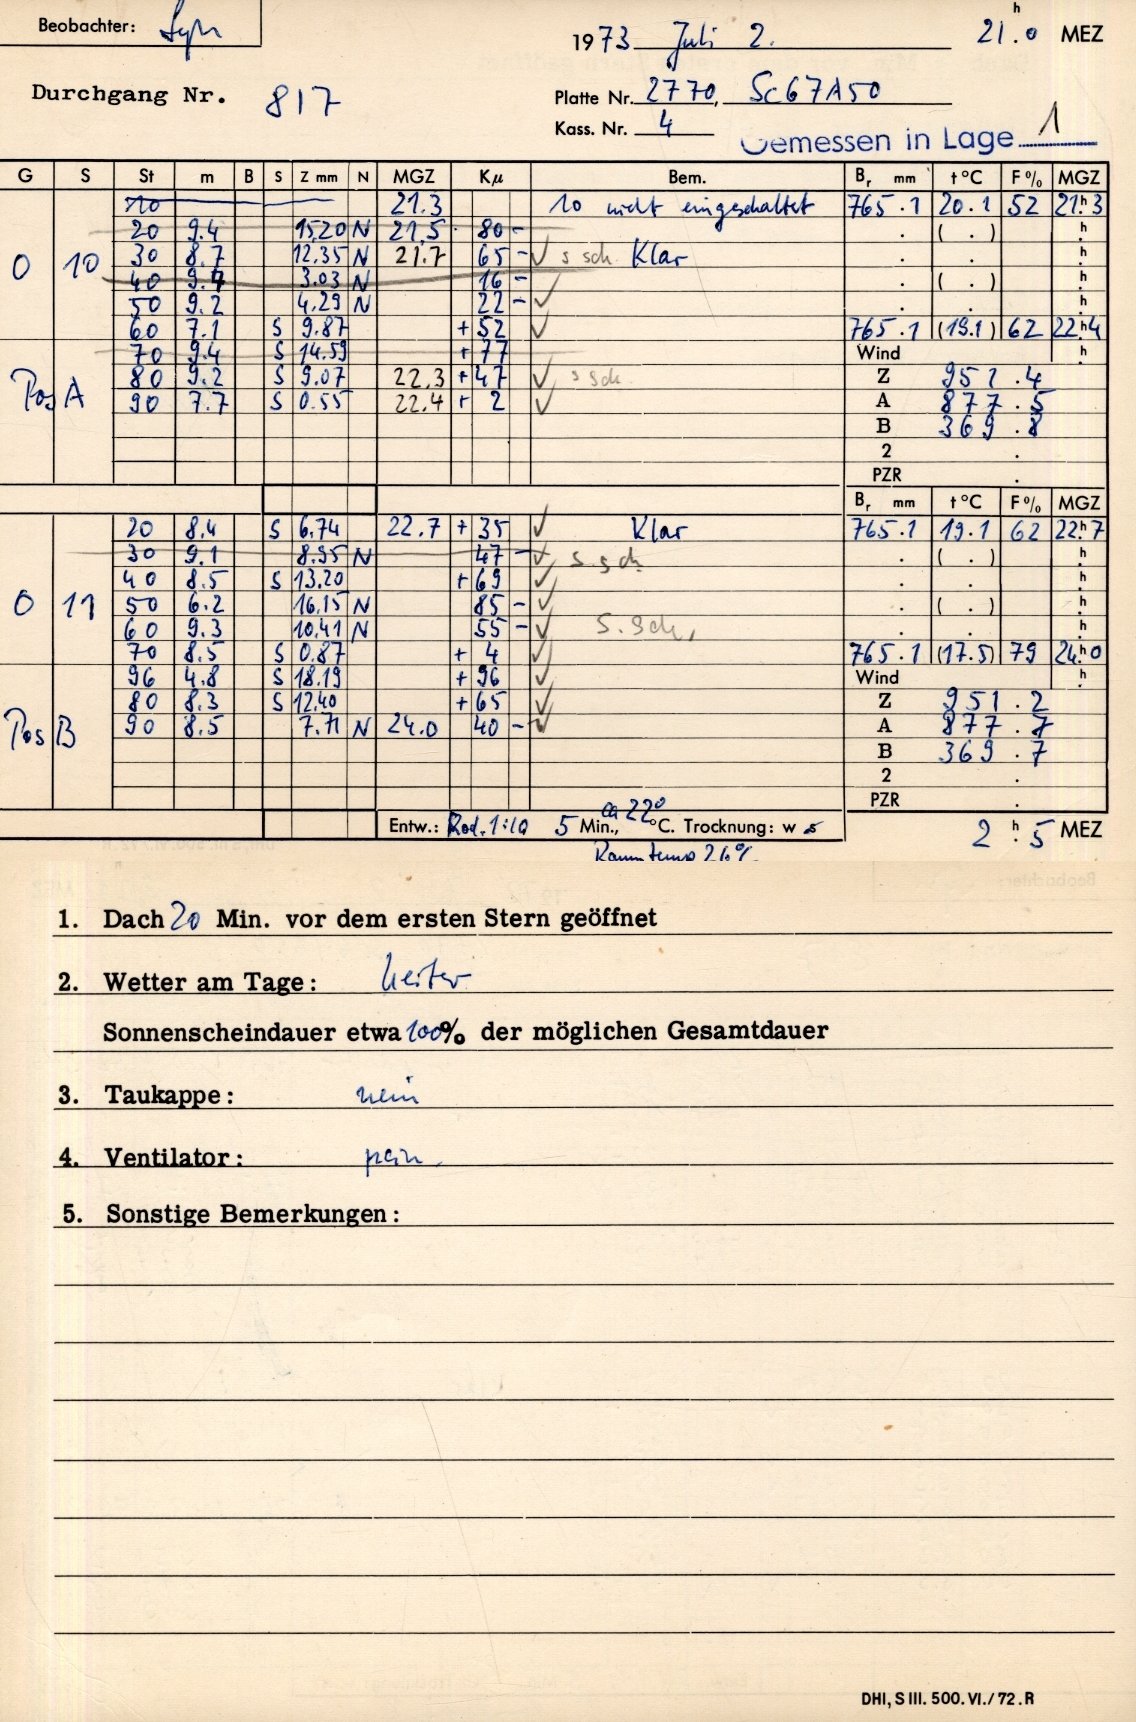 Beobachter:
1973 Juli 2. 21.h0 MEZ
Durchgang Nr. 817
Platte Nr. 2770, Sc67A50
Kass. Nr. 4
Gemessen in Lage 1
G S St m B S Z mm N MGZ Kμ Bem. Br mm t °C F % MGZ
10 21.3 10 nicht eingeschaltet 765.1 20.1 52 21h3
20 9.4 15.20 N 21.5 80 - ( . ) h
O 10 30 8.7 12.35 N 21.7 65 - ✓ s sch Klar . . h
40 9.4 3.03 N 16 - . ( . ) h
50 9.2 4.29 N 22 - ✓ . . h
60 7.1 S 9.87 + 52 ✓ 765.1 (19.1) 62 22h4
70 9.4 S 14.59 + 77 Wind h
Pos A 80 9.2 S 9.07 22.3 + 47 ✓ s sch Z 951.4
90 7.7 S 0.55 22.4 + 2 ✓ A 877.5
B 369.8
2 .
PZR .
Br mm t °C F % MGZ
20 8.4 S 6.74 22.7 + 35 ✓ Klar 765.1 19.1 62 22h7
30 9.1 8.95 N 47 - ✓ s.sch . ( . ) h
40 8.5 S 13.20 + 69 ✓ . . h
O 11 50 6.2 16.15 N 85 - ✓ . ( . ) h
60 9.3 10.41 N 55 - ✓ s.sch. . . h
70 8.5 S 0.87 + 4 ✓ 765.1 (17.5) 79 24h0
96 4.8 S 18.19 + 96 ✓ Wind h
80 8.3 S 12.40 + 65 ✓ Z 951.2
Pos B 90 8.5 7.71 N 24.0 40 - ✓ A 877.7
B 369.7
2 .
PZR .
Entw.: Rod. 1:10 5 Min., ca 22° °C. Trocknung: w s 2h.5 MEZ
Raumtemp 26°
1. Dach 20 Min. vor dem ersten Stern geöffnet
2. Wetter am Tage: heiter
Sonnenscheindauer etwa 100% der möglichen Gesamtdauer
3. Taukappe: nein
4. Ventilator: nein
5. Sonstige Bemerkungen:
DHI, S III. 500. VI./72. R